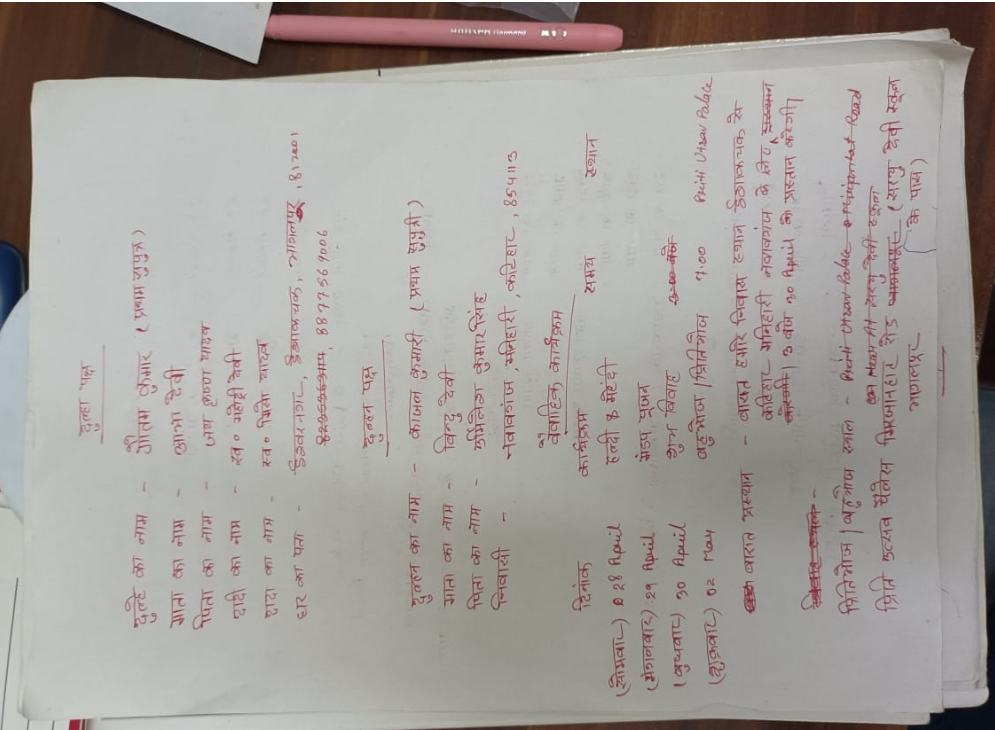 दुल्हा पक्ष
दुल्हे का नाम - गौतम कुमार (प्रथम सुपुत्र)
माता का नाम - आभा देवी
पिता का नाम - जय कृष्ण यादव
दादी का नाम - स्व० देवी
दादा का नाम - स्व० यादव
घर का पता - ईश्वरनगर, भागलपुर, 812001
8877569006
दुल्हन पक्ष
दुल्हन का नाम - काजल कुमारी (प्रथम सुपुत्री)
माता का नाम - विन्दु देवी
पिता का नाम - कुमार सिंह
निवासी - नवाबगंज, मनिहारी, कटिहार, 854113
वैवाहिक कार्यक्रम
दिनांक कार्यक्रम समय स्थान
(सोमवार) 28 April हल्दी & मेहंदी
(मंगलवार) 29 April मंडप पूजन
(बुधवार) 30 April शुभ विवाह
(शुक्रवार) 02 May बहुभोज/प्रितिभोज 7:00 Priti Utsav Palace
बारात प्रस्थान - बारात हमारे निवास स्थान से
कटिहार मनिहारी नवाबगंज के लिए
3 बजे 30 April को प्रस्तान करेगी।
प्रितिभोज/बहुभोज स्थल -
प्रिति उत्सव पैलेस मिरजानहाट रोड (सरयु देवी स्कूल
भागलपुर के पास)